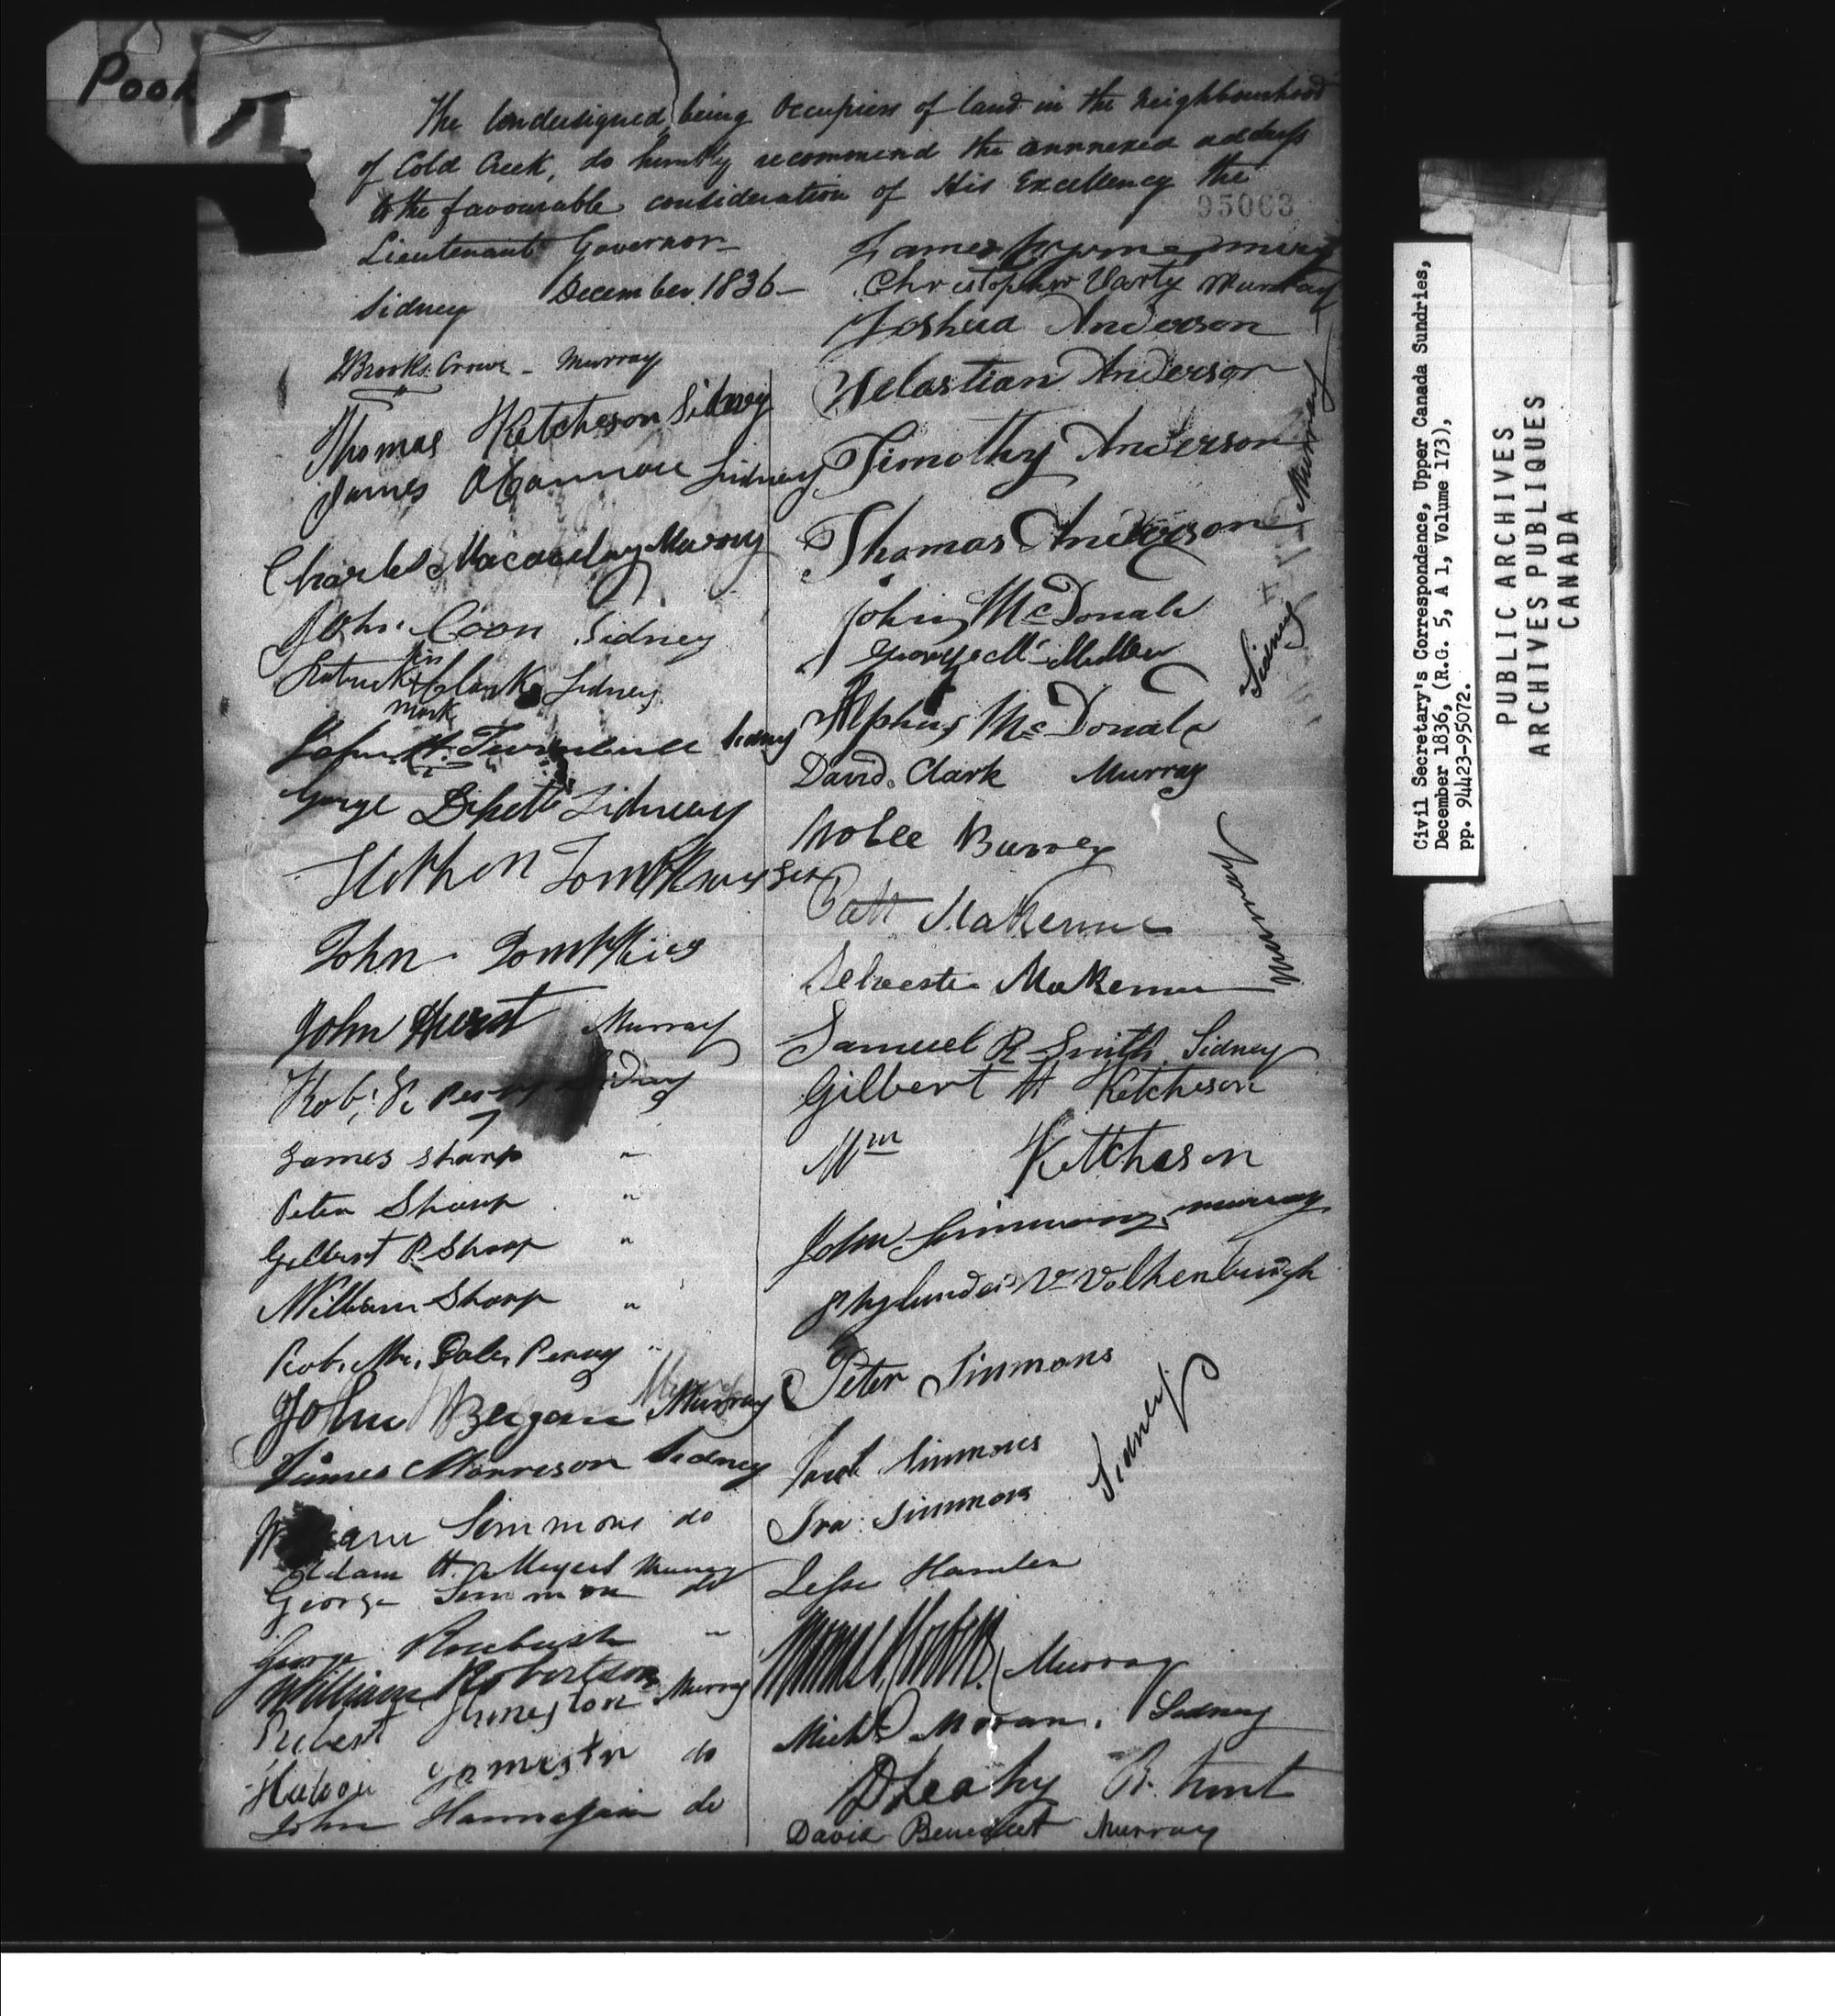 Pook
The Undersigned being Occupiers of land in the neighbourhood
of Cold Creek, do humbly recommend the annexed address
to the favourable consideration of His Excellency the
95063
Lieutenant Governor
Sidney December 1836
Brooks Crowe - Murray
Thomas Ketcheson Sidney
James Sidney
Charles Macaulay Murray
John Coon Sidney
Patrick his Clark Sidney
mark
John Turnbull Sidney
George Sidney
John Tompkins
John Hurst Murray
Rob. Perry Sidney
James Sharp "
Peter Sharp "
Gilbert P. Sharp "
William Sharp "
Rob. Perry "
John Murray
James Morrison Sidney
William Simmons do
Adam H. Meyers Murray
George Simmon do
George Rosebush "
William Robertson
Murray
do
John do
James
Christopher Varty Murray
Joshua Anderson
Sebastian Anderson
Timothy Anderson
Thomas Anderson
Murray
John McDonald
George
Sidney
Alpheus McDonald
David Clark Murray
Patt MaKenna
Murray
MaKenna
Samuel R Smith Sidney
Gilbert H Ketcheson
Wm Ketcheson
John Simmons Murray
Vn Volkenburgh
Peter Simmons
Jacob Simmons
Sidney
Ira Simmons
Jesse Hamlin
Murray
Michl Moran. Sidney
D Leahy R. Hunt
David Benedict Murray
Civil Secretary's Correspondence, Upper Canada Sundries,
December 1836, (R.G. 5, A 1, Volume 173),
pp. 94423-95072.
PUBLIC ARCHIVES
ARCHIVES PUBLIQUES
CANADA